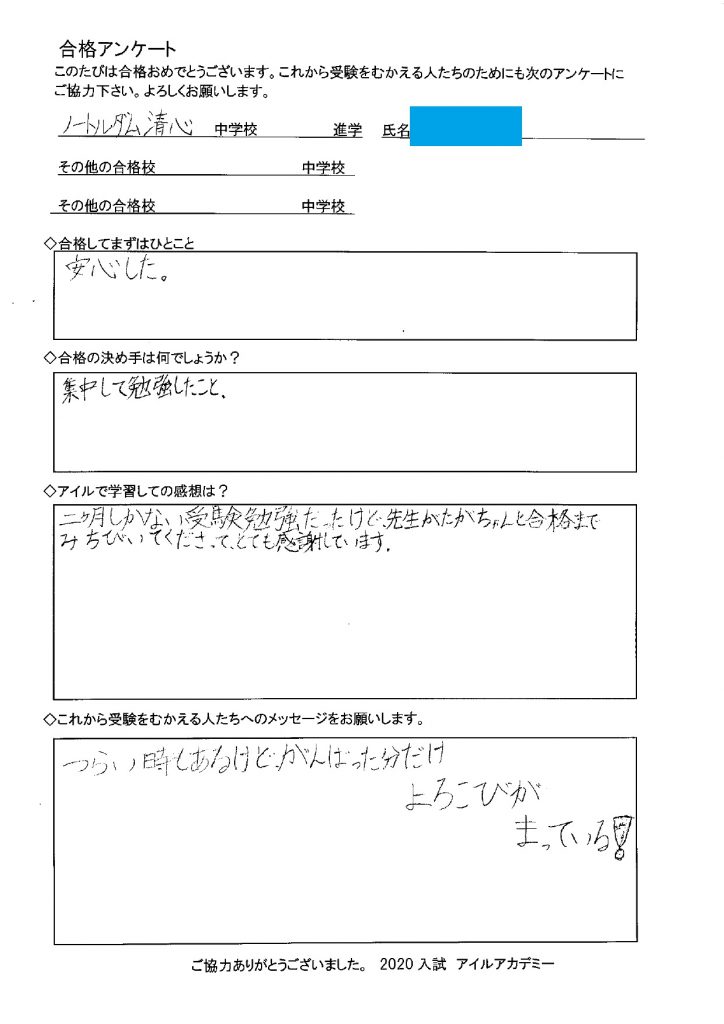 合格アンケート
このたびは合格おめでとうございます。これから受験をむかえる人たちのためにも次のアンケートに
ご協力下さい。よろしくお願いします。
ノートルダム清心 中学校 進学 氏名
その他の合格校 中学校
その他の合格校 中学校
◇合格してまずはひとこと
安心した。
◇合格の決め手は何でしょうか？
集中して勉強したこと、
◇アイルで学習しての感想は？
二ヶ月しかない受験勉強だったけど、先生がたがちゃんと合格まで
みちびいてくださって、とても感謝しています。
◇これから受験をむかえる人たちへのメッセージをお願いします。
つらい時もあるけど、がんばった分だけ
よろこびが
まっている!
ご協力ありがとうございました。 2020 入試 アイルアカデミー